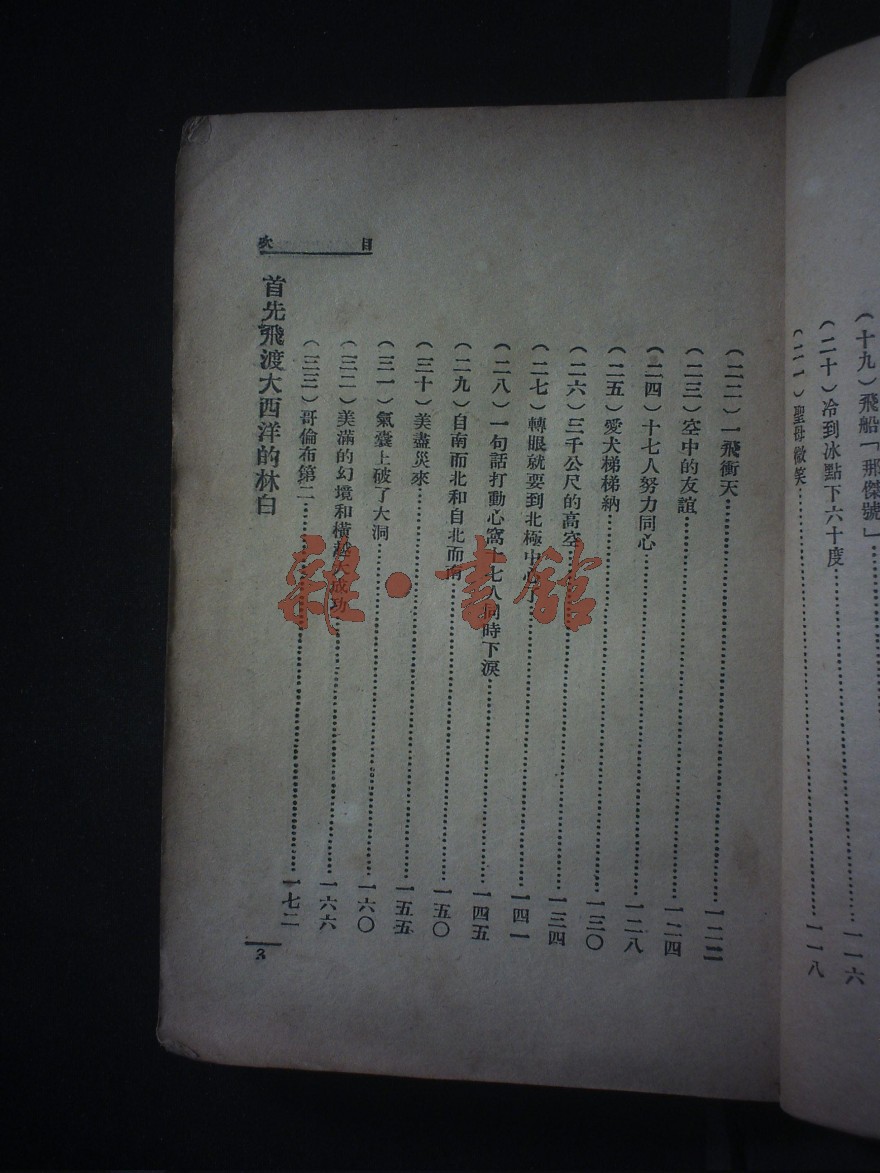 (十九)飛船「那傑號」
(二十)冷到冰點下六十度……一一六
(二一)聖母微笑……一一八
目次
(二二)一飛衝天……一二二
(二三)空中的友誼……一二四
(二四)十七人努力同心……一二八
(二五)愛犬梯梯納……一三〇
(二六)三千公尺的高空……一三四
(二七)轉眼就要到北極中心了……一四一
(二八)一句話打動心窩十七人同時下淚……一四五
(二九)自南而北和自北而南……一五〇
(三十)美盡災來……一五五
(三一)氣囊上破了大洞……一六〇
(三二)美滿的幻境和橫越大成功……一六六
(三三)哥倫布第二……一七二
首先飛渡大西洋的林白
3
雜·書館